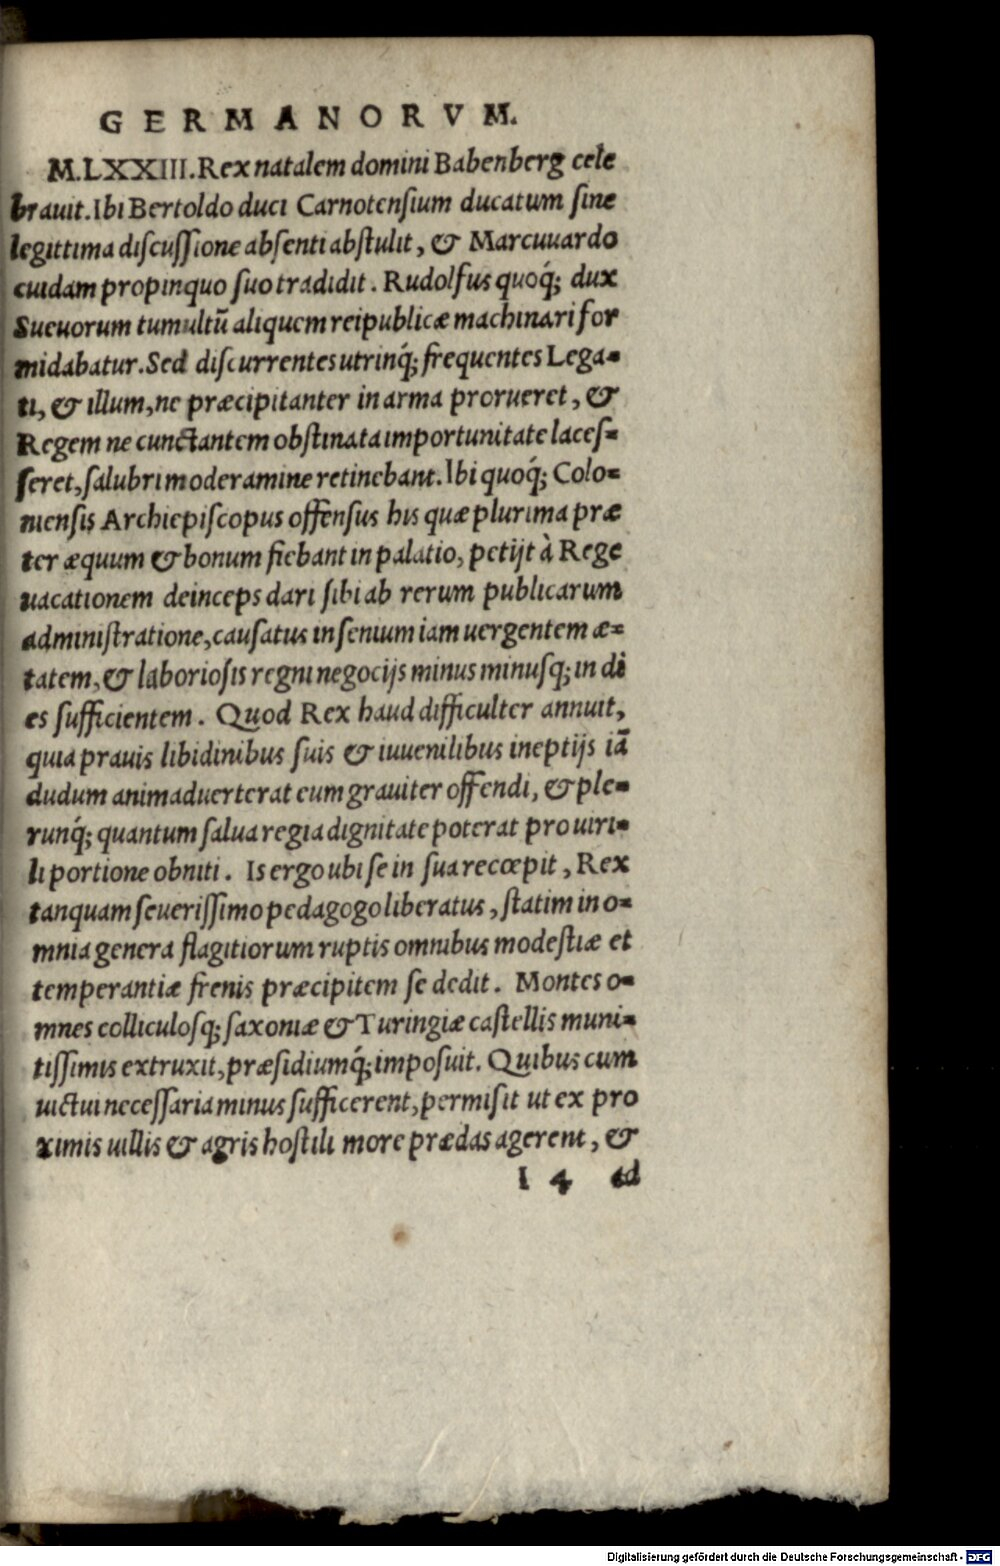 GERMANORVM.
M.LXXIII. Rex natalem domini Babenberg cele
brauit. Ibi Bertoldo duci Carnotensium ducatum sine
legittima discussione absenti abstulit, & Marcuuardo
cuidam propinquo suo tradidit. Rudolfus quoq́; dux
Sueuorum tumultū aliquem reipublicæ machinari for
midabatur. Sed discurrentes utrinq́; frequentes Lega-
ti, & illum, ne præcipitanter in arma prorueret, &
Regem ne cunctantem obstinata importunitate laces-
seret, salubri moderamine retinebant. Ibi quoq́; Colo-
niensis Archiepiscopus offensus his quæ plurima præ
ter æquum & bonum fiebant in palatio, petijt à Rege
uacationem deinceps dari sibi ab rerum publicarum
administratione, causatus in senium iam uergentem æ-
tatem, & laboriosis regni negocijs minus minusq; in di
es sufficientem. Quod Rex haud difficulter annuit,
quia prauis libidinibus suis & iuuenilibus ineptijs iā
dudum animaduerterat eum grauiter offendi, & ple-
runq́; quantum salua regia dignitate poterat pro uiri-
li portione obniti. Is ergo ubi se in sua recœpit, Rex
tanquam seuerissimo pedagogo liberatus, statim in o-
mnia genera flagitiorum ruptis omnibus modestiæ et
temperantiæ frenis præcipitem se dedit. Montes o-
mnes colliculosq; saxoniæ & Turingiæ castellis muni-
tissimis extruxit, præsidiumq́; imposuit. Quibus cum
uictui necessaria minus sufficerent, permisit ut ex pro
ximis uillis & agris hostili more prædas agerent, &
I 4 ad
Digitalisierung gefördert durch die Deutsche Forschungsgemeinschaft - DFG